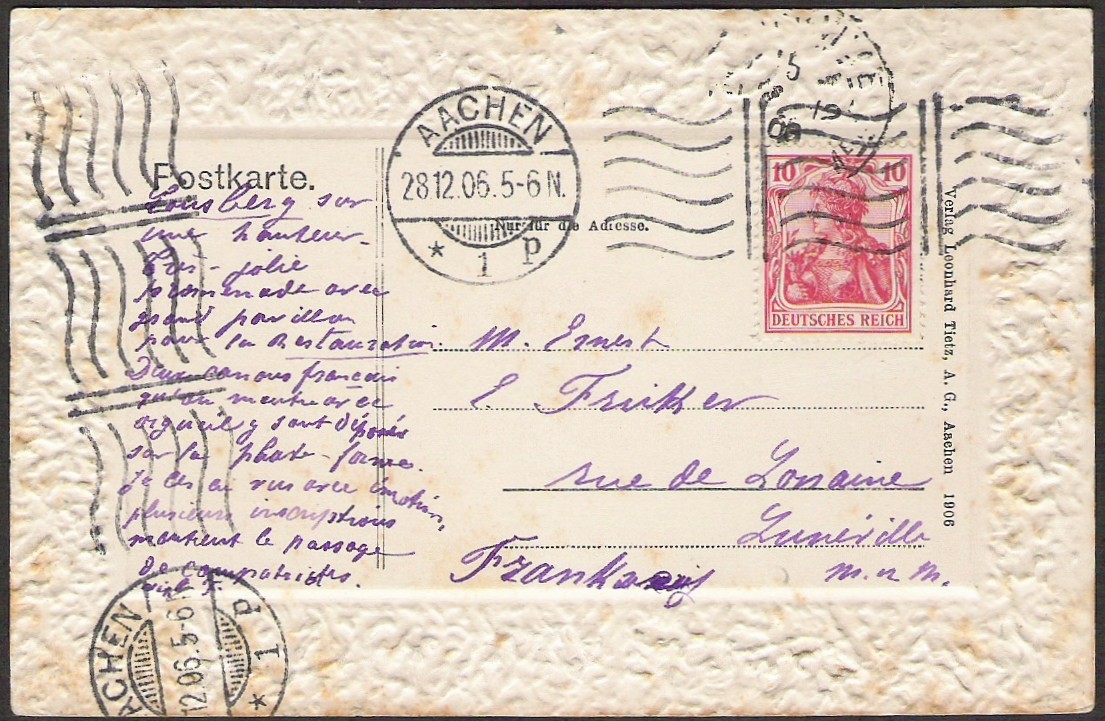 Postkarte.
Nur für die Adresse.
AACHEN
28.12.06.5-6 N.
* 1 p
10 10
DEUTSCHES REICH
Verlag Leonhard Tietz, A. G., Aachen 1906
Lousberg sur
une hauteur
Très-jolie
promenade avec
grand pavillon
pour la Restauration.
Deux canons français
qu'on montre avec
orgueil y sont déposés
sur la plate-forme.
Je les ai vus avec émotion,
plusieurs inscriptions
montrent le passage
de compatriotes.
M. Ernest
E Fricker
rue de Lorraine
Lunéville
M. u M.
AACHEN
12.06.5-6 N
* 1 p